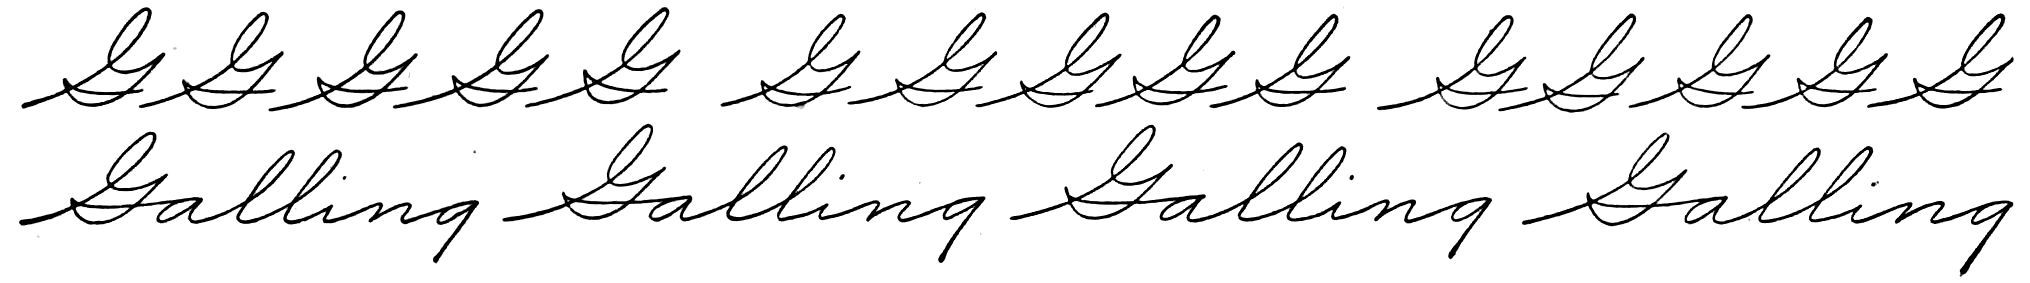 G G G G G G G G G G G G G G G
Galling Galling Galling Galling